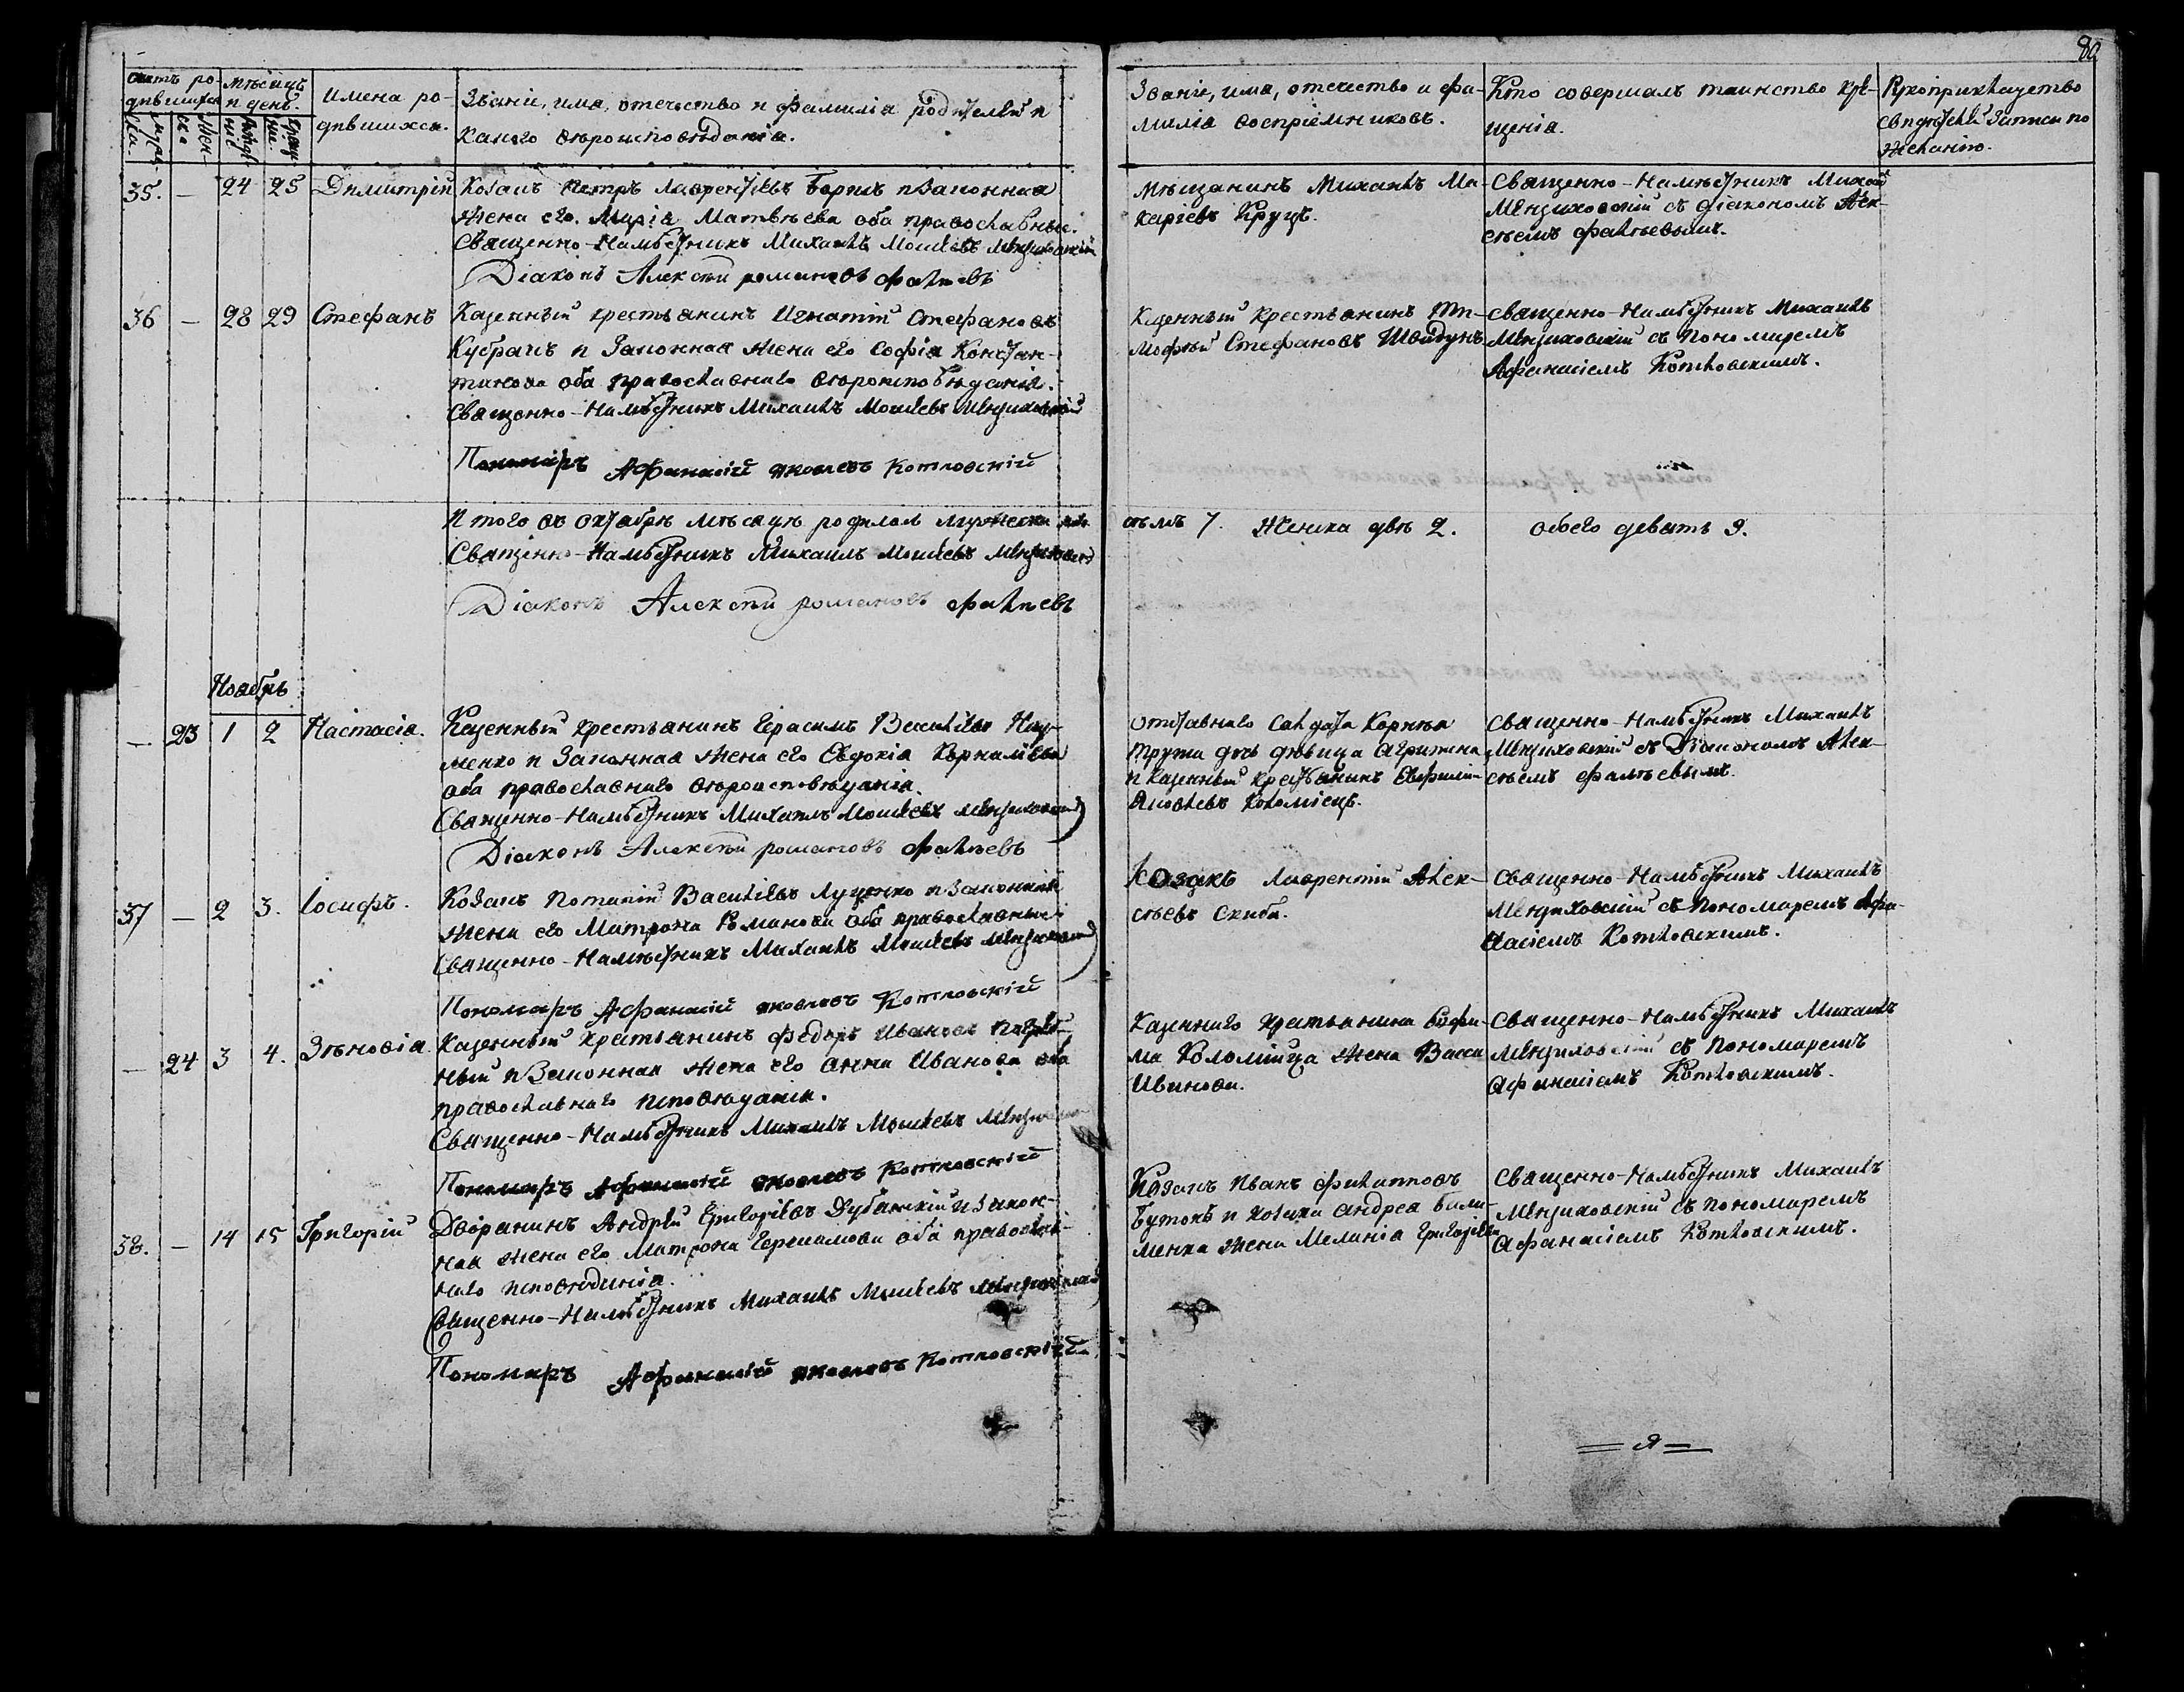 80
Счетъ ро-
дившихся
Мужеска
Женска
Мѣсяцъ
и день.
Рожденіе
Крещеніе.
Имена ро-
дившихся.
Званіе, имя, отечество и фамилія родителей и
какого вѣроисповѣданія.
Званіе, имя, отечество и фа-
милія воспріемниковъ.
Кто совершалъ таинство кре-
щенія.
Рукоприкладство
свидѣтелей записи по
желанію.
35. — 24 25 Димитрій
Козакъ Петръ Лаврентіевъ и законная
жена его Марія Матвѣева оба православные.
Священно-Намѣстникъ Михаилъ Моисеевъ Мензиховскій
Діаконъ Алексѣй романовъ фалѣевъ
Мѣщанинъ Михаилъ Ма-
каріевъ Круцъ.
Священно-Намѣстникъ Михаилъ
Мензиховскій съ діакономъ Алек-
сѣемъ фалѣевымъ.
36 — 28 29 Стефанъ
Казенный крестьянинъ Игнатій Стефановъ
Кубракъ и Законная жена его Софія Констан-
тинова оба православнаго вѣроисповѣданія.
Священно-Намѣстникъ Михаилъ Моисеевъ Мензиховскій
Пономаръ Афанасій яковлевъ Котловскій
Казенный крестьянинъ Ти-
мофѣй Стефановъ Швидунъ
священно-Намѣстникъ Михаилъ
Мензиховскій съ пономаремъ
Афанасіемъ Котловскимъ.
Итого въ октябрѣ мѣсяцѣ родилось мужеска
семь 7. Женска двѣ 2. обоего девять 9.
Священно-Намѣстникъ Михаилъ Моисеевъ Мензиховскій
Діаконъ Алексѣй романовъ фалѣевъ
Ноябрь
— 23 1 2 Настасія.
Казенный крестьянинъ Герасимъ Василіевъ
менко и Законная жена его Евдокія Корнилiева
оба православнаго вѣроисповѣданія.
Священно-Намѣстникъ Михаилъ Моисеевъ Мензиховскій
Діаконъ Алексѣй романовъ фалѣевъ
отставнаго солдата Корнѣя
Трути дочь дѣвица Агрипина
и казенный крестьянинъ Евфимій
Яковлевъ Коломіецъ.
Священно-Намѣстникъ Михаилъ
Мензиховскій съ Діакономъ Алек-
сѣемъ фалѣевымъ.
37 — 2 3. Іосифъ.
Козакъ Потапій Василіевъ Луценко и Законная
жена его Матрона Романова оба православные
Священно-Намѣстникъ Михаилъ Моисеевъ Мензиховскій
Пономаръ Афанасій яковлевъ Котловскій
Козакъ Лаврентій Алек-
сѣевъ Скиба.
Священно-Намѣстникъ Михаилъ
Мензиховскій съ пономаремъ Афа-
насіемъ Котловскимъ.
— 24 3 4. Зѣновія.
Казенный крестьянинъ Федоръ Ивановъ
ный и Законная жена его анна Иванова оба
православнаго исповѣданія.
Священно-Намѣстникъ Михаилъ Моисеевъ Мензиховскій
Пономаръ Афанасій яковлевъ Котловскій
Казеннаго крестьянина Евфи-
ма Коломійца жена Васса
Иванова.
Священно-Намѣстникъ Михаилъ
Мензиховскій съ пономаремъ
Афанасіемъ Котловскимъ.
38. — 14 15 Григорій
Дворянинъ Андрей Григоріевъ Дубянскій и Закон-
ная жена его Матрона оба православ-
наго исповѣданія.
Священно-Намѣстникъ Михаилъ Моисеевъ Мензиховскій
Пономаръ Афанасій яковлевъ Котловскій
Козакъ Иванъ филипповъ
Бутокъ и козака андрея
менка жена Меланія Григоріева
Священно-Намѣстникъ Михаилъ
Мензиховскій съ пономаремъ
Афанасіемъ Котловскимъ.